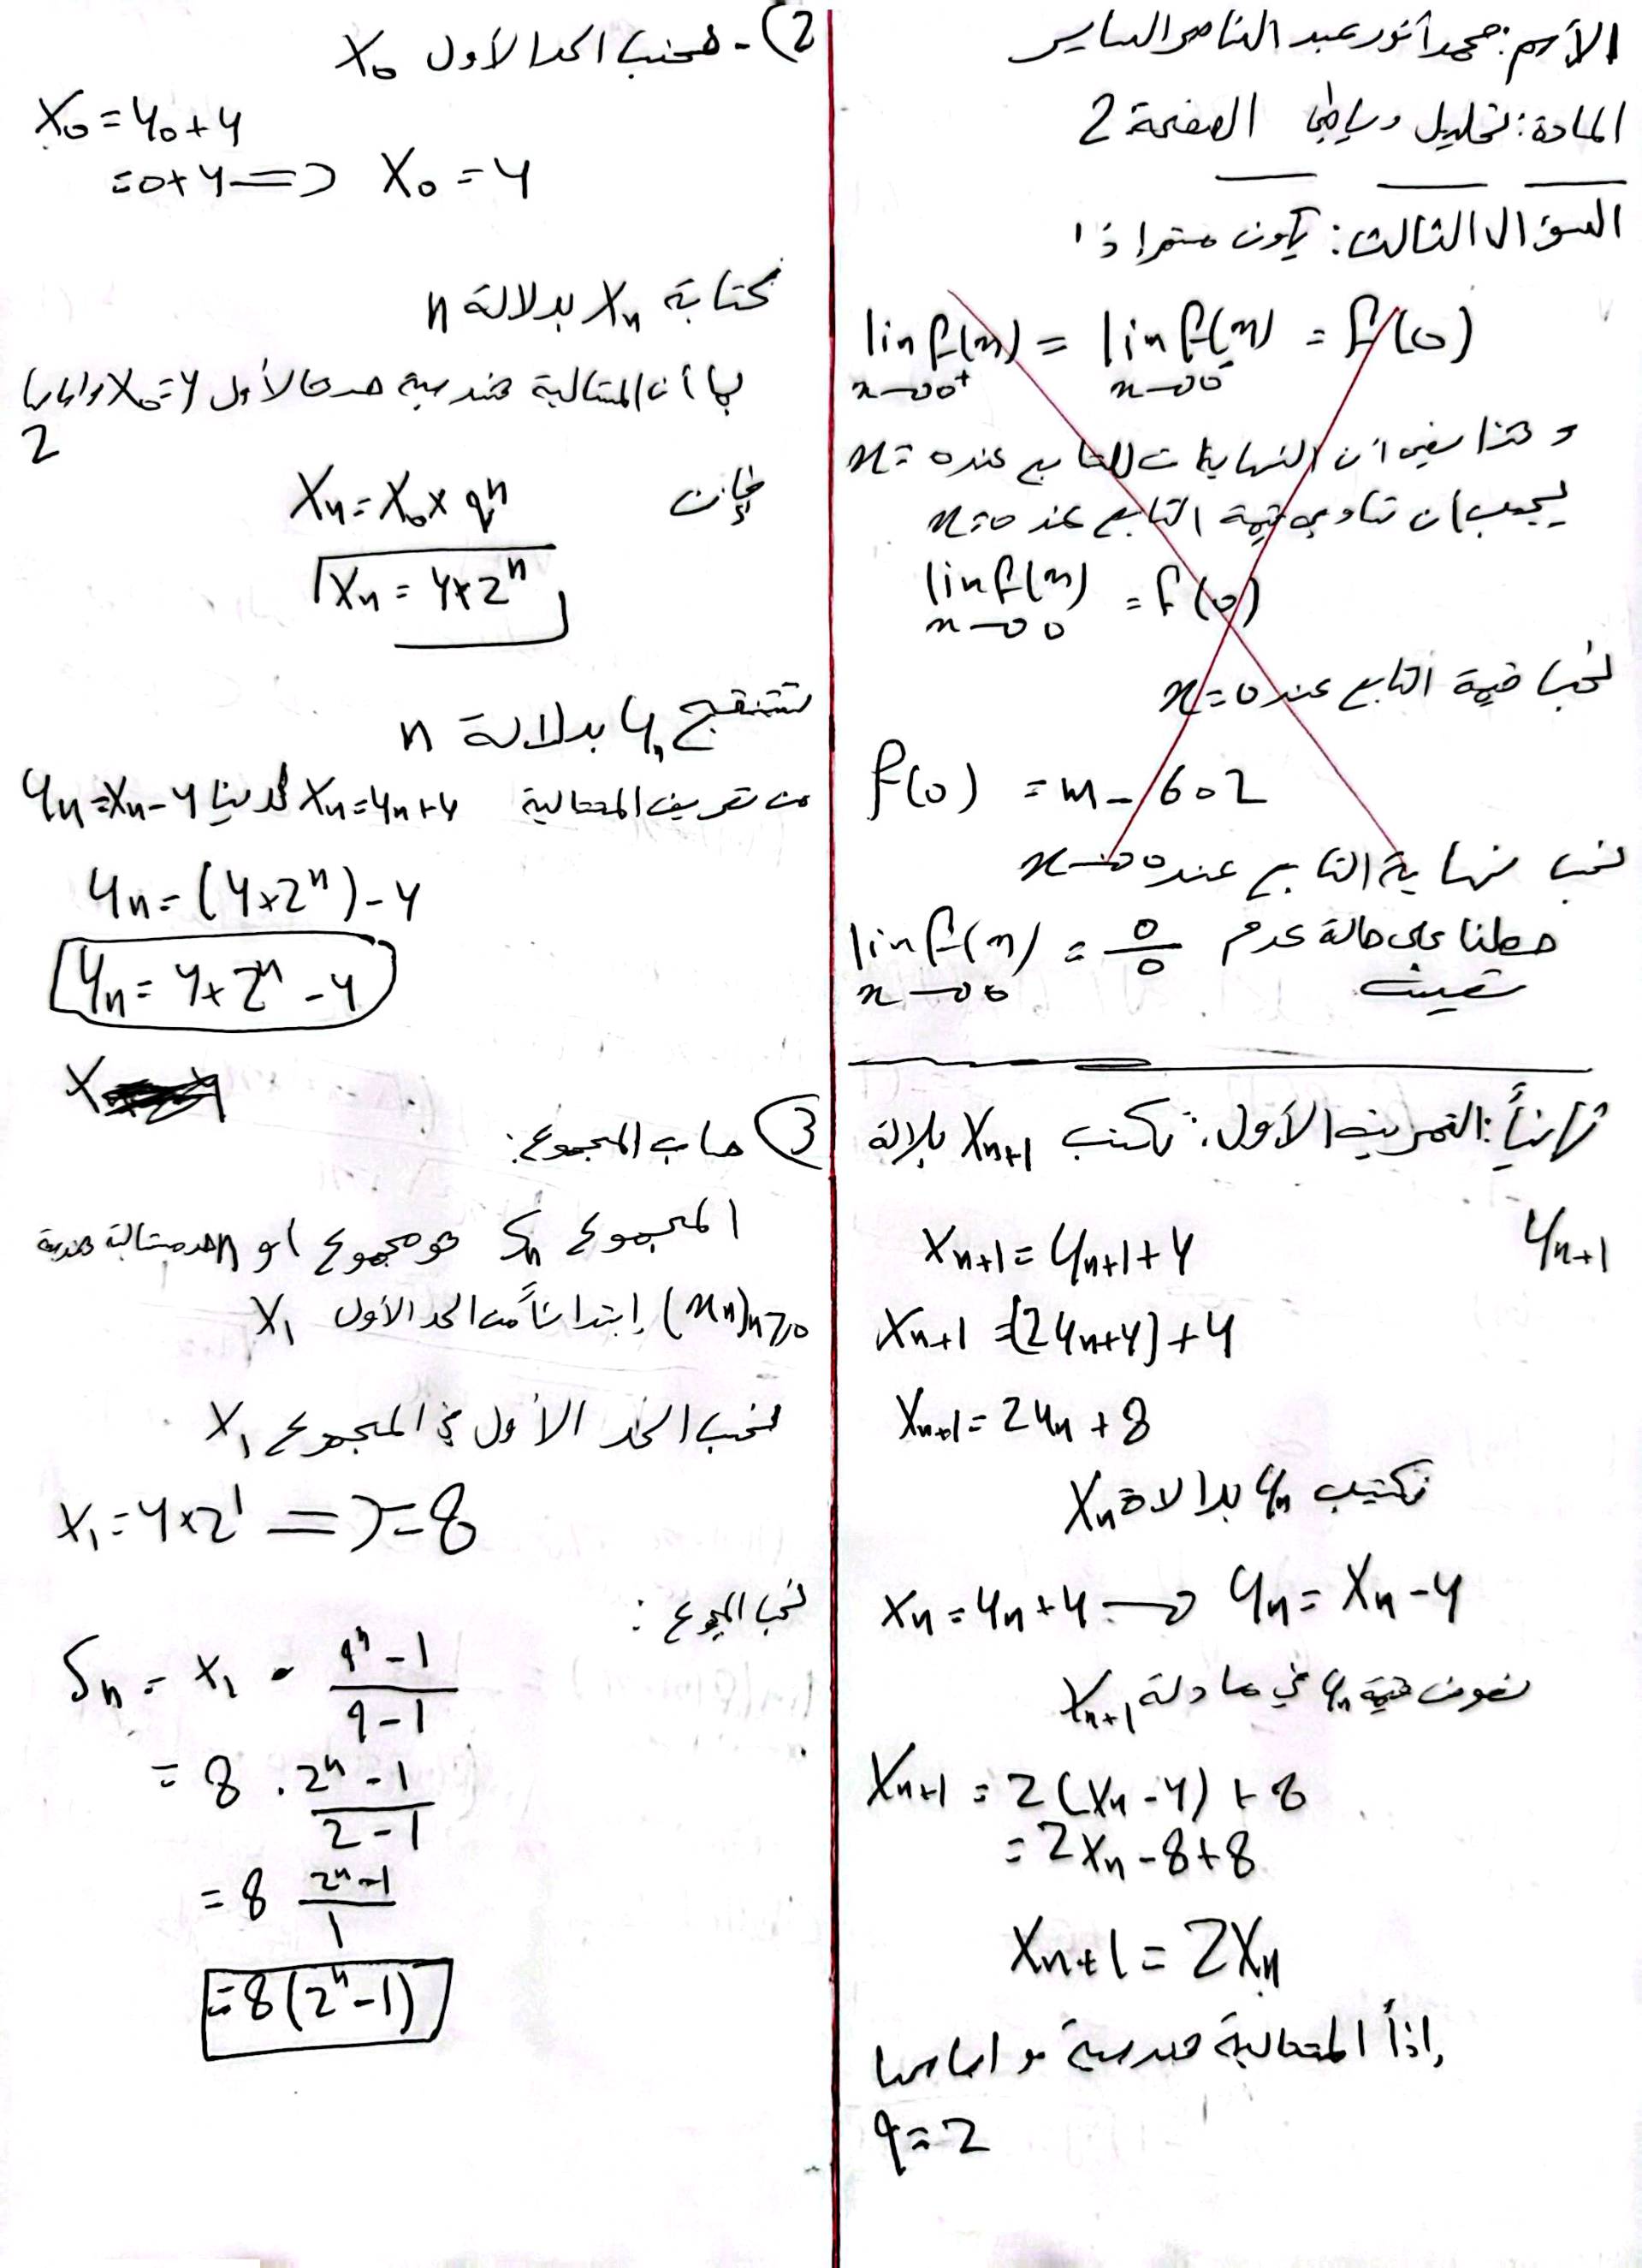 الأسم: محمد أنور عبد الناصر الساير
المادة: تحليل رياضي الصفحة 2
السؤال الثالث: يكون مستمر اذا
lin f(x) = lin f(x) = f(0)
x→0⁺ x→0⁻
و هذا يعني ان النهايات للتابع عند x=0
يجب ان تساوي قيمة التابع عند x=0
lin f(x) = f(0)
x→0
نحسب قيمة التابع عند x=0
f(0) = m - 602
نحسب نهاية التابع عند x→0
lin f(x) = 0/0 حصلنا على حالة عدم
x→0 تعيين
ثانياً: التمرين الأول: نكتب Xn+1 بدلالة
yn+1
Xn+1 = yn+1 + 4
Xn+1 = (2yn+4) + 4
Xn+1 = 2yn + 8
نكتب yn بدالاة Xn
Xn = yn + 4 → yn = Xn - 4
نعوض قيمة yn في معادلة Xn+1
Xn+1 = 2(Xn - 4) + 8
= 2Xn - 8 + 8
Xn+1 = 2Xn
إذاً المتتالية هندسية و اساسها
q = 2
2)- نحسب الحد الأول X0
X0 = y0 + 4
= 0 + 4 => X0 = 4
كتابة Xn بدلالة n
بما أن المتتالية هندسية حدها الأول X0=4 واساسها
2
فإن Xn = X0 × qⁿ
Xn = 4×2ⁿ
نستنتج yn بدلالة n
من تعريف المتتالية Xn = yn+4 لدينا yn = Xn - 4
yn = (4×2ⁿ) - 4
yn = 4×2ⁿ - 4
3 حساب المجموع:
المجموع Sn هو مجموع اول n حد متتالية هندسية
(xn)n≥0 إبتداءً من الحد الأول X1
نحسب الحد الأول في المجموع X1
X1 = 4×2¹ => = 8
نحسب المجموع:
Sn = X1 · qⁿ - 1 / q - 1
= 8 · 2ⁿ - 1 / 2 - 1
= 8 2ⁿ - 1 / 1
= 8(2ⁿ - 1)